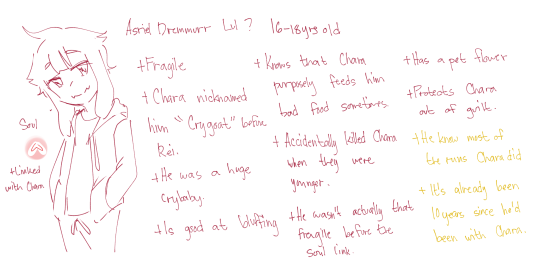 Asriel Dremmurr Lvl ? 16-18yrs old
+Fragile
+Chara nicknamed
him "Crygoat" before
Rei.
+He was a huge
crybaby.
+Is good at bluffing
Soul
+Linked
with Chara
+Knows that Chara
purposely feeds him
bad food sometimes.
+Accidentally killed Chara
when they were
younger.
+He wasn't actually that
fragile before the
soul link.
+Has a pet flower
+Protects Chara
out of guilt.
+He knew most of
the runs Chara did
+It's already been
10 years since he'd
been with Chara.